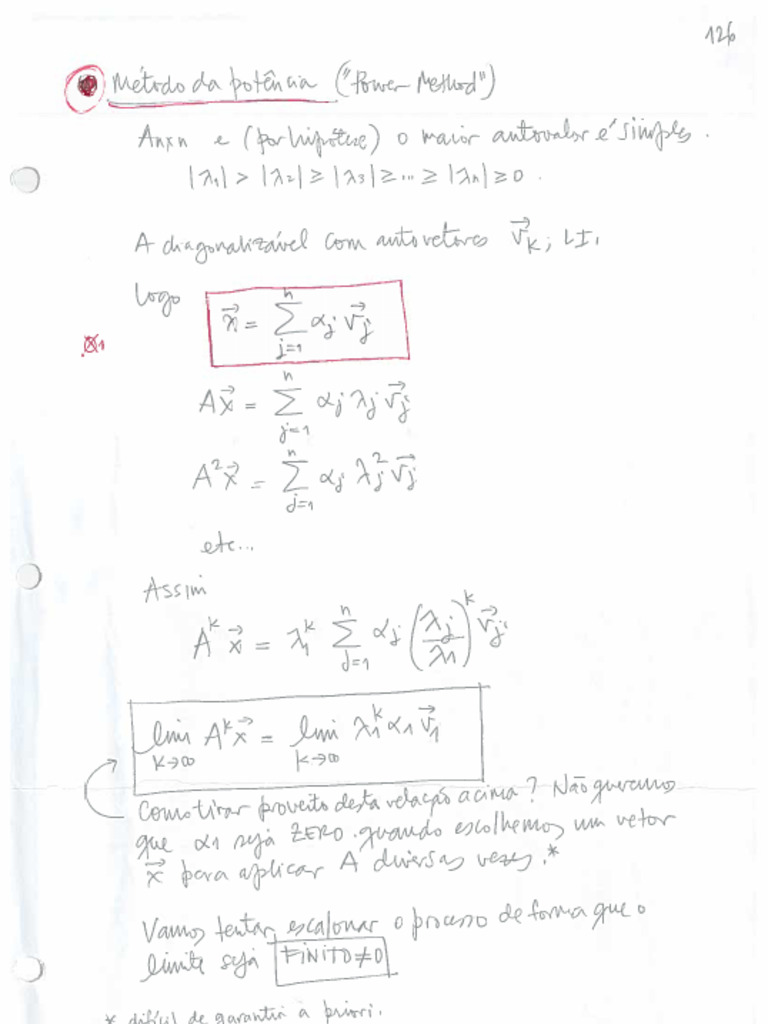 126
Método da potência ("Power Method")
Anxn e (por hipótese) o maior autovalor é simples.
|λ1| > |λ2| ≥ |λ3| ≥ ... ≥ |λn| ≥ 0.
A diagonalizável com autovetores v⃗k; LI.
Logo
x⃗ = Σ_{j=1}^{n} αj v⃗j
Ax⃗ = Σ_{j=1}^{n} αj λj v⃗j
A²x⃗ = Σ_{j=1}^{n} αj λj² v⃗j
etc...
Assim
A^k x⃗ = λ1^k Σ_{j=1}^{n} αj (λj/λ1)^k v⃗j
lim_{k→∞} A^k x⃗ = lim_{k→∞} λ1^k α1 v⃗1
Como tirar proveito desta relação acima? Não queremos
que α1 seja ZERO quando escolhemos um vetor
x⃗ para aplicar A diversas vezes.*
Vamos tentar escalonar o processo de forma que o
limite seja FINITO≠0
* difícil de garantir a priori.